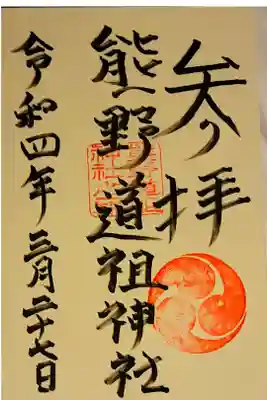 参拝
熊野道祖神社
令和四年三月二十七日